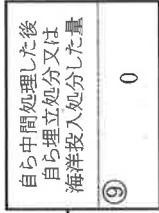 自ら中間処理した後
自ら埋立処分又は
海洋投入処分した量
⑨
0